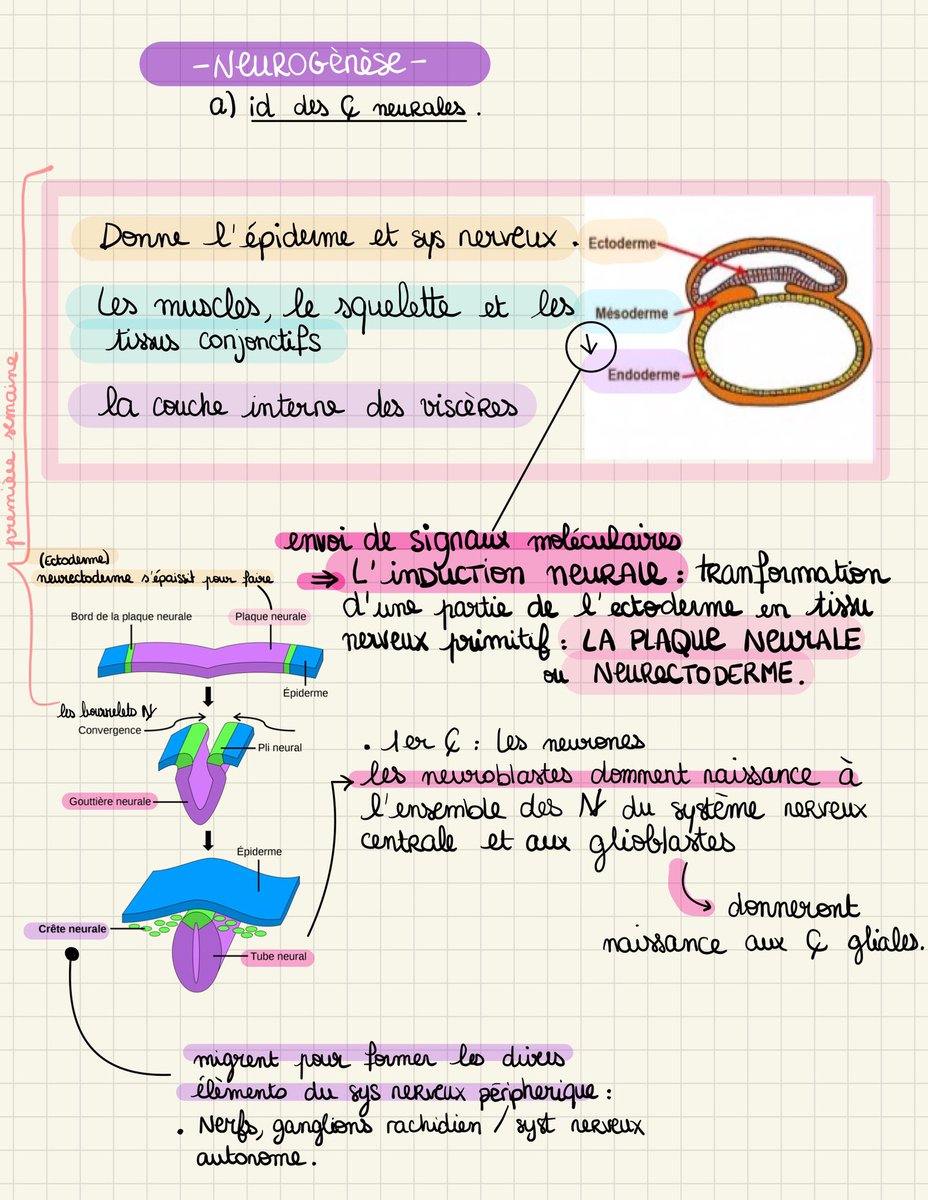 -NEUROGÈNÈSE-
a) id des ₵ neurales.
première semaine
Donne l'épiderme et sys nerveux.
Ectoderme
Les muscles, le squelette et les
tissus conjonctifs
Mésoderme
↓
la couche interne des viscères
Endoderme
envoi de signaux moléculaires
⇒ L'INDUCTION NEURALE : tranformation
d'une partie de l'ectoderme en tissu
nerveux primitif : LA PLAQUE NEURALE
ou NEURECTODERME.
(Ectoderme)
neurectoderme s'épaissit pour faire
Bord de la plaque neurale
Plaque neurale
Épiderme
les bourrelets N
Convergence
Pli neural
Gouttière neurale
Épiderme
Crête neurale
Tube neural
• 1er ₵ : Les neurones
les neuroblastes domment naissance à
l'ensemble des N du système nerveux
centrale et aux glioblastes
donneront
naissance aux ₵ gliales.
migrent pour former les divers
élèments du sys nerveux péripherique :
• Nerfs, ganglions rachidien / syst nerveux
autonome.